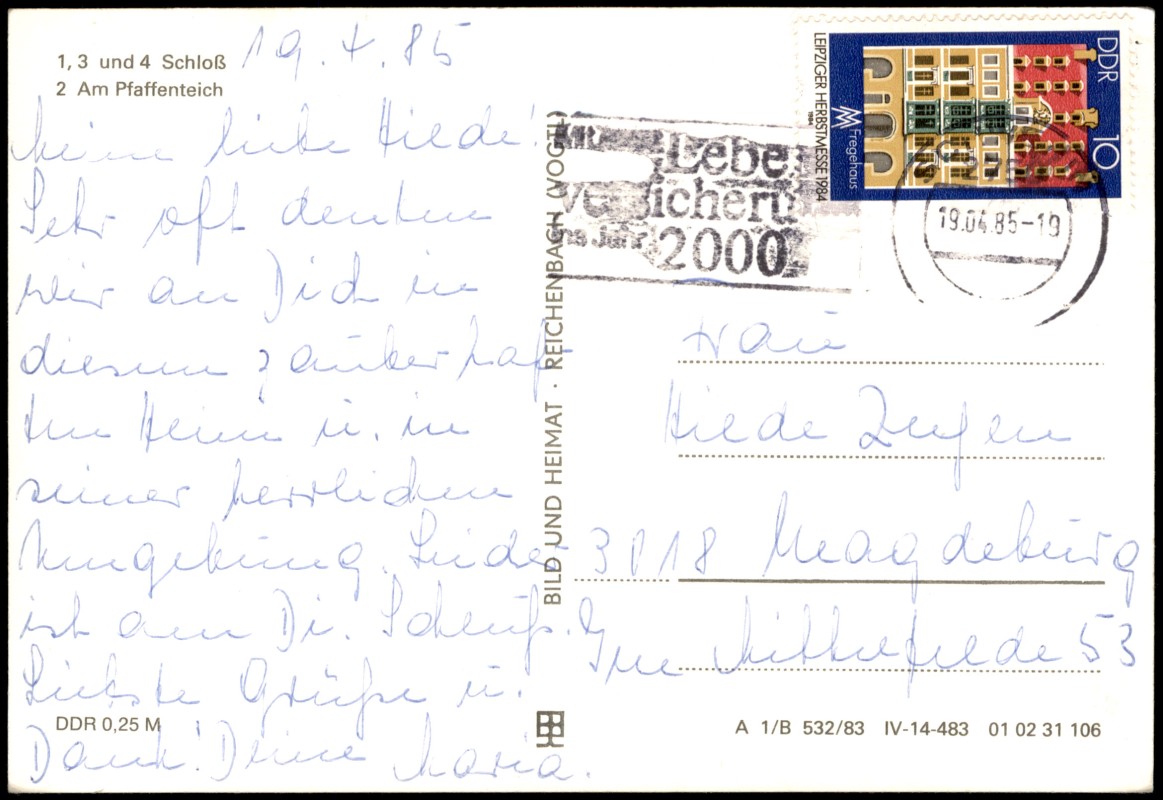 1, 3 und 4 Schloß
2 Am Pfaffenteich
19.4.85
Meine liebe Hilde!
Sehr oft denken
wir an Dich in
diesem zauberhaf-
ten Heim u. in
seiner herrlichen
Umgebung. Leider
ist am Di. Schluß.
Liebste Grüße u.
Dank! Deine Maria.
DDR 0,25 M
BILD UND HEIMAT · REICHENBACH (VOGTL)
Lebe
versicheru
ins Jahr
2000
19.04.85-19
DDR
10
LEIPZIGER HERBSTMESSE 1984
Fregehaus
1984
Frau
Hilde
3018 Magdeburg
Im 53
A 1/B 532/83 IV-14-483 01 02 31 106